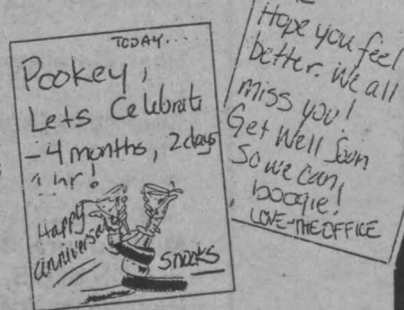 TODAY....
Pookey,
Lets Celebrate
-4 months, 2 days
1 hr!
Happy
anniversary
Snooks
Hope you feel
better. We all
miss you!
Get Well Soon
So we can
boogie!
LOVE-THE OFFICE